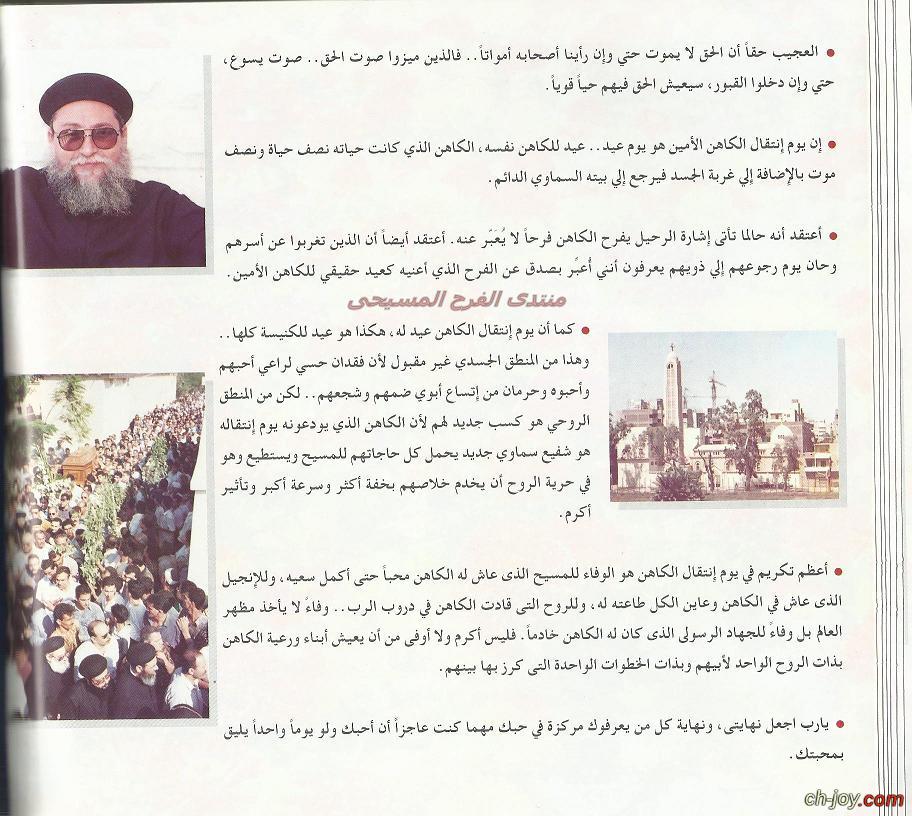 ● العجيب حقاً أن الحق لا يموت حتي وإن رأينا أصحابه أمواتاً.. فالذين ميزوا صوت الحق.. صوت يسوع،
حتي وإن دخلوا القبور، سيعيش الحق فيهم حياً قوياً.
● إن يوم إنتقال الكاهن الأمين هو يوم عيد.. عيد للكاهن نفسه، الكاهن الذي كانت حياته نصف حياة ونصف
موت بالإضافة إلي غربة الجسد فيرجع إلي بيته السماوي الدائم.
● أعتقد أنه حالما تأتى إشارة الرحيل يفرح الكاهن فرحاً لا يُعبَر عنه. أعتقد أيضاً أن الذين تغربوا عن أسرهم
وحان يوم رجوعهم إلي ذويهم يعرفون أنني أُعبِّر بصدق عن الفرح الذي أعنيه كعيد حقيقي للكاهن الأمين.
منتدى الفرح المسيحى
● كما أن يوم إنتقال الكاهن عيد له، هكذا هو عيد للكنيسة كلها..
وهذا من المنطق الجسدي غير مقبول لأن فقدان حسي لراعي أحبهم
وأحبوه وحرمان من إتساع أبوي ضمهم وشجعهم.. لكن من المنطق
الروحي هو كسب جديد لهم لأن الكاهن الذي يودعونه يوم إنتقاله
هو شفيع سماوي جديد يحمل كل حاجاتهم للمسيح ويستطيع وهو
في حرية الروح أن يخدم خلاصهم بخفة أكثر وسرعة أكبر وتأثير
أكرم.
● أعظم تكريم في يوم إنتقال الكاهن هو الوفاء للمسيح الذى عاش له الكاهن محباً حتى أكمل سعيه، وللإنجيل
الذى عاش في الكاهن وعاين الكل طاعته له، وللروح التى قادت الكاهن في دروب الرب.. وفاءً لا يأخذ مظهر
العالم بل وفاءً للجهاد الرسولى الذى كان له الكاهن خادماً. فليس أكرم ولا أوفى من أن يعيش أبناء ورعية الكاهن
بذات الروح الواحد لأبيهم وبذات الخطوات الواحدة التى كرز بها بينهم.
● يارب اجعل نهايتى، ونهاية كل من يعرفوك مركزة في حبك مهما كنت عاجزاً أن أحبك ولو يوماً واحداً يليق
بمحبتك.
ch-joy.com